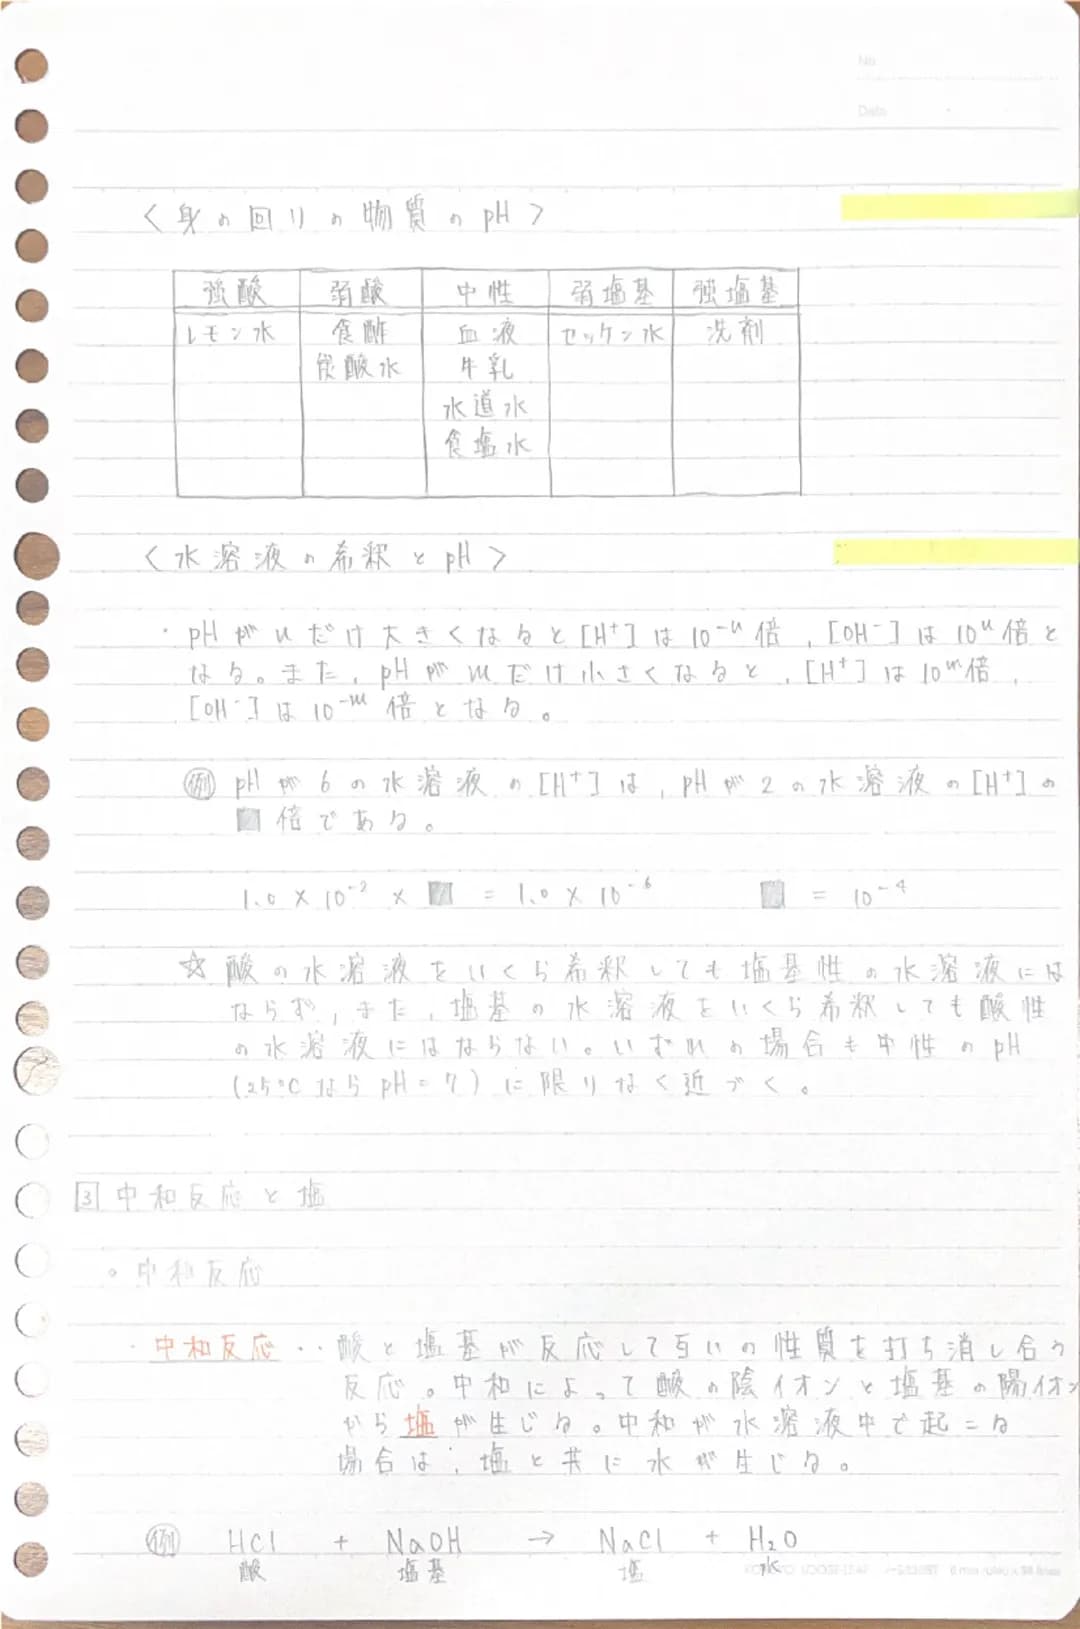 No.
Date
〈身の回りの物質のpH〉
強酸 弱酸 中性 弱塩基 強塩基
レモン水 食酢 血液 セッケン水 洗剤
炭酸水 牛乳
水道水
食塩水
〈水溶液の希釈とpH〉
・pHがnだけ大きくなると[H⁺]は10⁻ⁿ倍，[OH⁻]は10ⁿ倍と
なる。また，pHがmだけ小さくなると，[H⁺]は10ᵐ倍，
[OH⁻]は10⁻ᵐ倍となる。
例 pHが6の水溶液の[H⁺]は，pHが2の水溶液の[H⁺]の
■倍である。
1.0×10⁻²×■=1.0×10⁻⁶ ■=10⁻⁴
☆酸の水溶液をいくら希釈しても塩基性の水溶液には
ならず，また，塩基の水溶液をいくら希釈しても酸性
の水溶液にはならない。いずれの場合も中性のpH
(25℃ならpH=7)に限りなく近づく。
3 中和反応と塩
。中和反応
・中和反応‥酸と塩基が反応して互いの性質を打ち消し合う
反応。中和によって酸の陰イオンと塩基の陽イオン
から塩が生じる。中和が水溶液中で起こる
場合は，塩と共に水が生じる。
例 HCl + NaOH → NaCl + H₂O
酸 塩基 塩 水